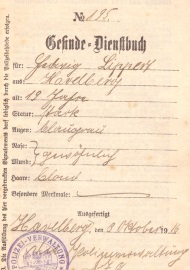 No 195.
Gesinde-Dienstbuch
für: Lippert
aus Havelberg
alt 19 Jahre
Statur: Stark
Augen: blaugrau
Nase: gewöhnlich
Mund:
Haare: blond
Besondere Merkmale:
Ausgefertigt
Havelberg, den 9 Oktober 1916
Polizeiverwaltung
POLIZEI-VERWALTUNG